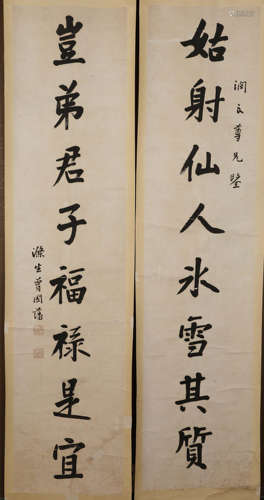 姑射仙人氷雪其質
潤文尊兄鑒
豈弟君子福祿是宜
滌生曾國藩